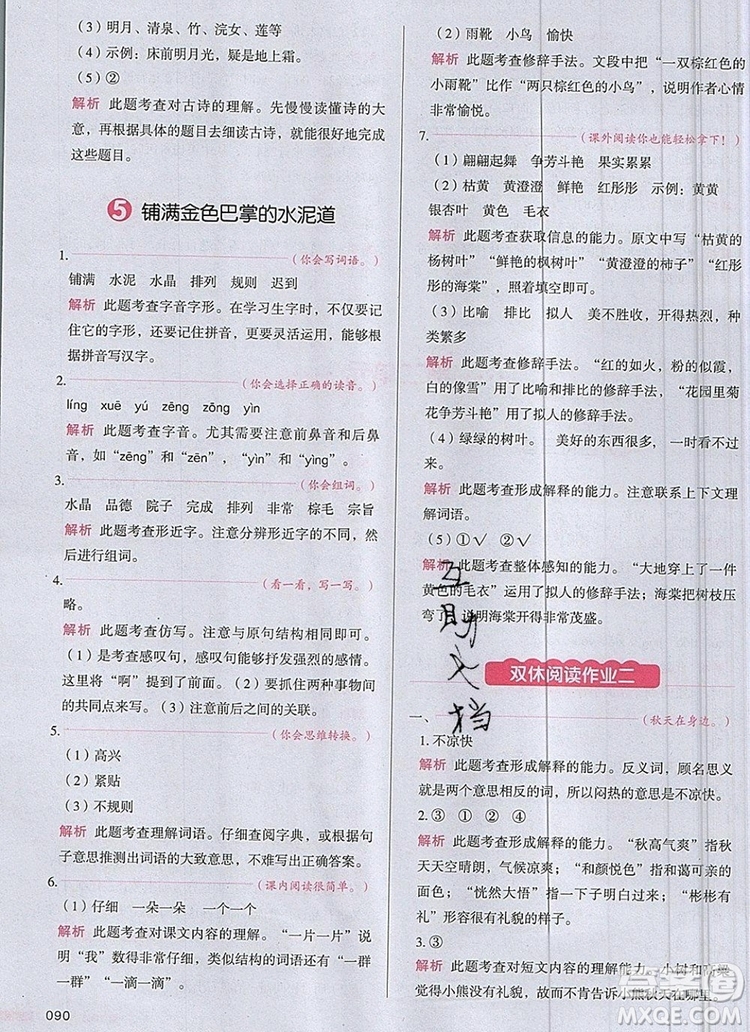 （3）明月、清泉、竹、浣女、莲等
（4）示例：床前明月光，疑是地上霜。
（5）②
解析 此题考查对古诗的理解。先慢慢读懂诗的大
意，再根据具体的题目去细读古诗，就能很好地完成
这些题目。
5 铺满金色巴掌的水泥道
1.（你会写词语。）
铺满 水泥 水晶 排列 规则 迟到
解析 此题考查字音字形。在学习生字时，不仅要记
住它的字形，也要掌握字音。更要灵活运用，能够根
据拼音写汉字。
2.（你会选择正确的读音。）
líng xuē yú zēng zōng yìn
解析 此题考查字音。尤其需要注意前鼻音和后鼻
音，如“zēng”和“zēn”，“yìn”和“yìng”。
3.（你会组词。）
水晶 品德 院子 完成 排列 非常 棕毛 宗旨
解析 此题考查形近字。注意分辨形近字的不同，然
后进行组词。
4.（看一看，写一写。）
略。
解析 此题考查仿写。注意与原句结构相同即可。
（1）是考查感叹句的能力，感叹句能够使句子的语气
将这种“啊”提到了前面。（2）要抓住两种事物间
的共同点来写句子，注意前后之间的关联。
5.（你会思维转换。）
（1）高兴
（2）紧贴
（3）不规则
解析 此题考查理解词语。仔细查阅字典，或根据句
子意思推测出词语的大致意思，不难填出正确答案。
6.（课内阅读很简单。）
（1）仔细 一朵一朵 一个一个
解析 此题考查对课文内容的理解。“一片一片”说
明“我”数得非常仔细。类似结构的词语还有“一群
一群”“一滴一滴”。
090
（2）雨靴 小鸟 愉快
解析 此题考查修辞手法。文段中把“一双棕红色的
小雨靴”比作“两只棕红色的小鸟”，说明作者心情
非常愉悦。
7.（课外阅读你也能轻松拿下！）
（1）翩翩起舞 争芳斗艳 果实累累
（2）枯黄 黄澄澄 鲜艳 红彤彤 示例：黄黄
银杏叶 黄色 毛衣
解析 此题考查获取信息的能力。原文中写“枯黄的
杨树叶”“鲜艳的枫树叶”“黄澄澄的柿子”“红彤
彤的海棠”，照着填空即可。
（3）比喻 排比 拟人 美不胜收，数量多，种
类繁多
解析 此题考查修辞手法。“红的如火，粉的似霞，
白的像雪”用了比喻和排比的修辞手法，“花园里菊
花争芳斗艳”用了拟人的修辞手法。
（4）绿绿的树叶。 美好的东西很多，一时看
不过来。
解析 此题考查形成解释的能力。注意联系上下文理
解词语。
（5）①√ ②√
解析 此题考查整体感知的能力。“大地穿上了一件
黄色的毛衣”运用了拟人的修辞手法；海棠把树枝压
弯了，说明海棠开得非常茂盛。
互助文档
双休阅读作业二
一、（秋天在身边。）
1. 不凉快
解析 此题考查形成解释的能力。反义词，顾名思义
就是两个意思相反的词，所以闷热的意思是不凉快。
2. ③①②④
解析 此题考查形成解释的能力。“秋高气爽”指秋
天天空晴朗，气候凉爽；“和颜悦色”指和蔼可亲的
面色；“恍然大悟”指忽然醒悟的样子；“彬彬有
礼”形容有礼貌的样子。
3. ③
解析 此题考查对短文内容的理解能力。小树和高粱
觉得小熊没有礼貌，所以不肯告诉小熊秋天在哪里。
答案圈
MXQE.COM